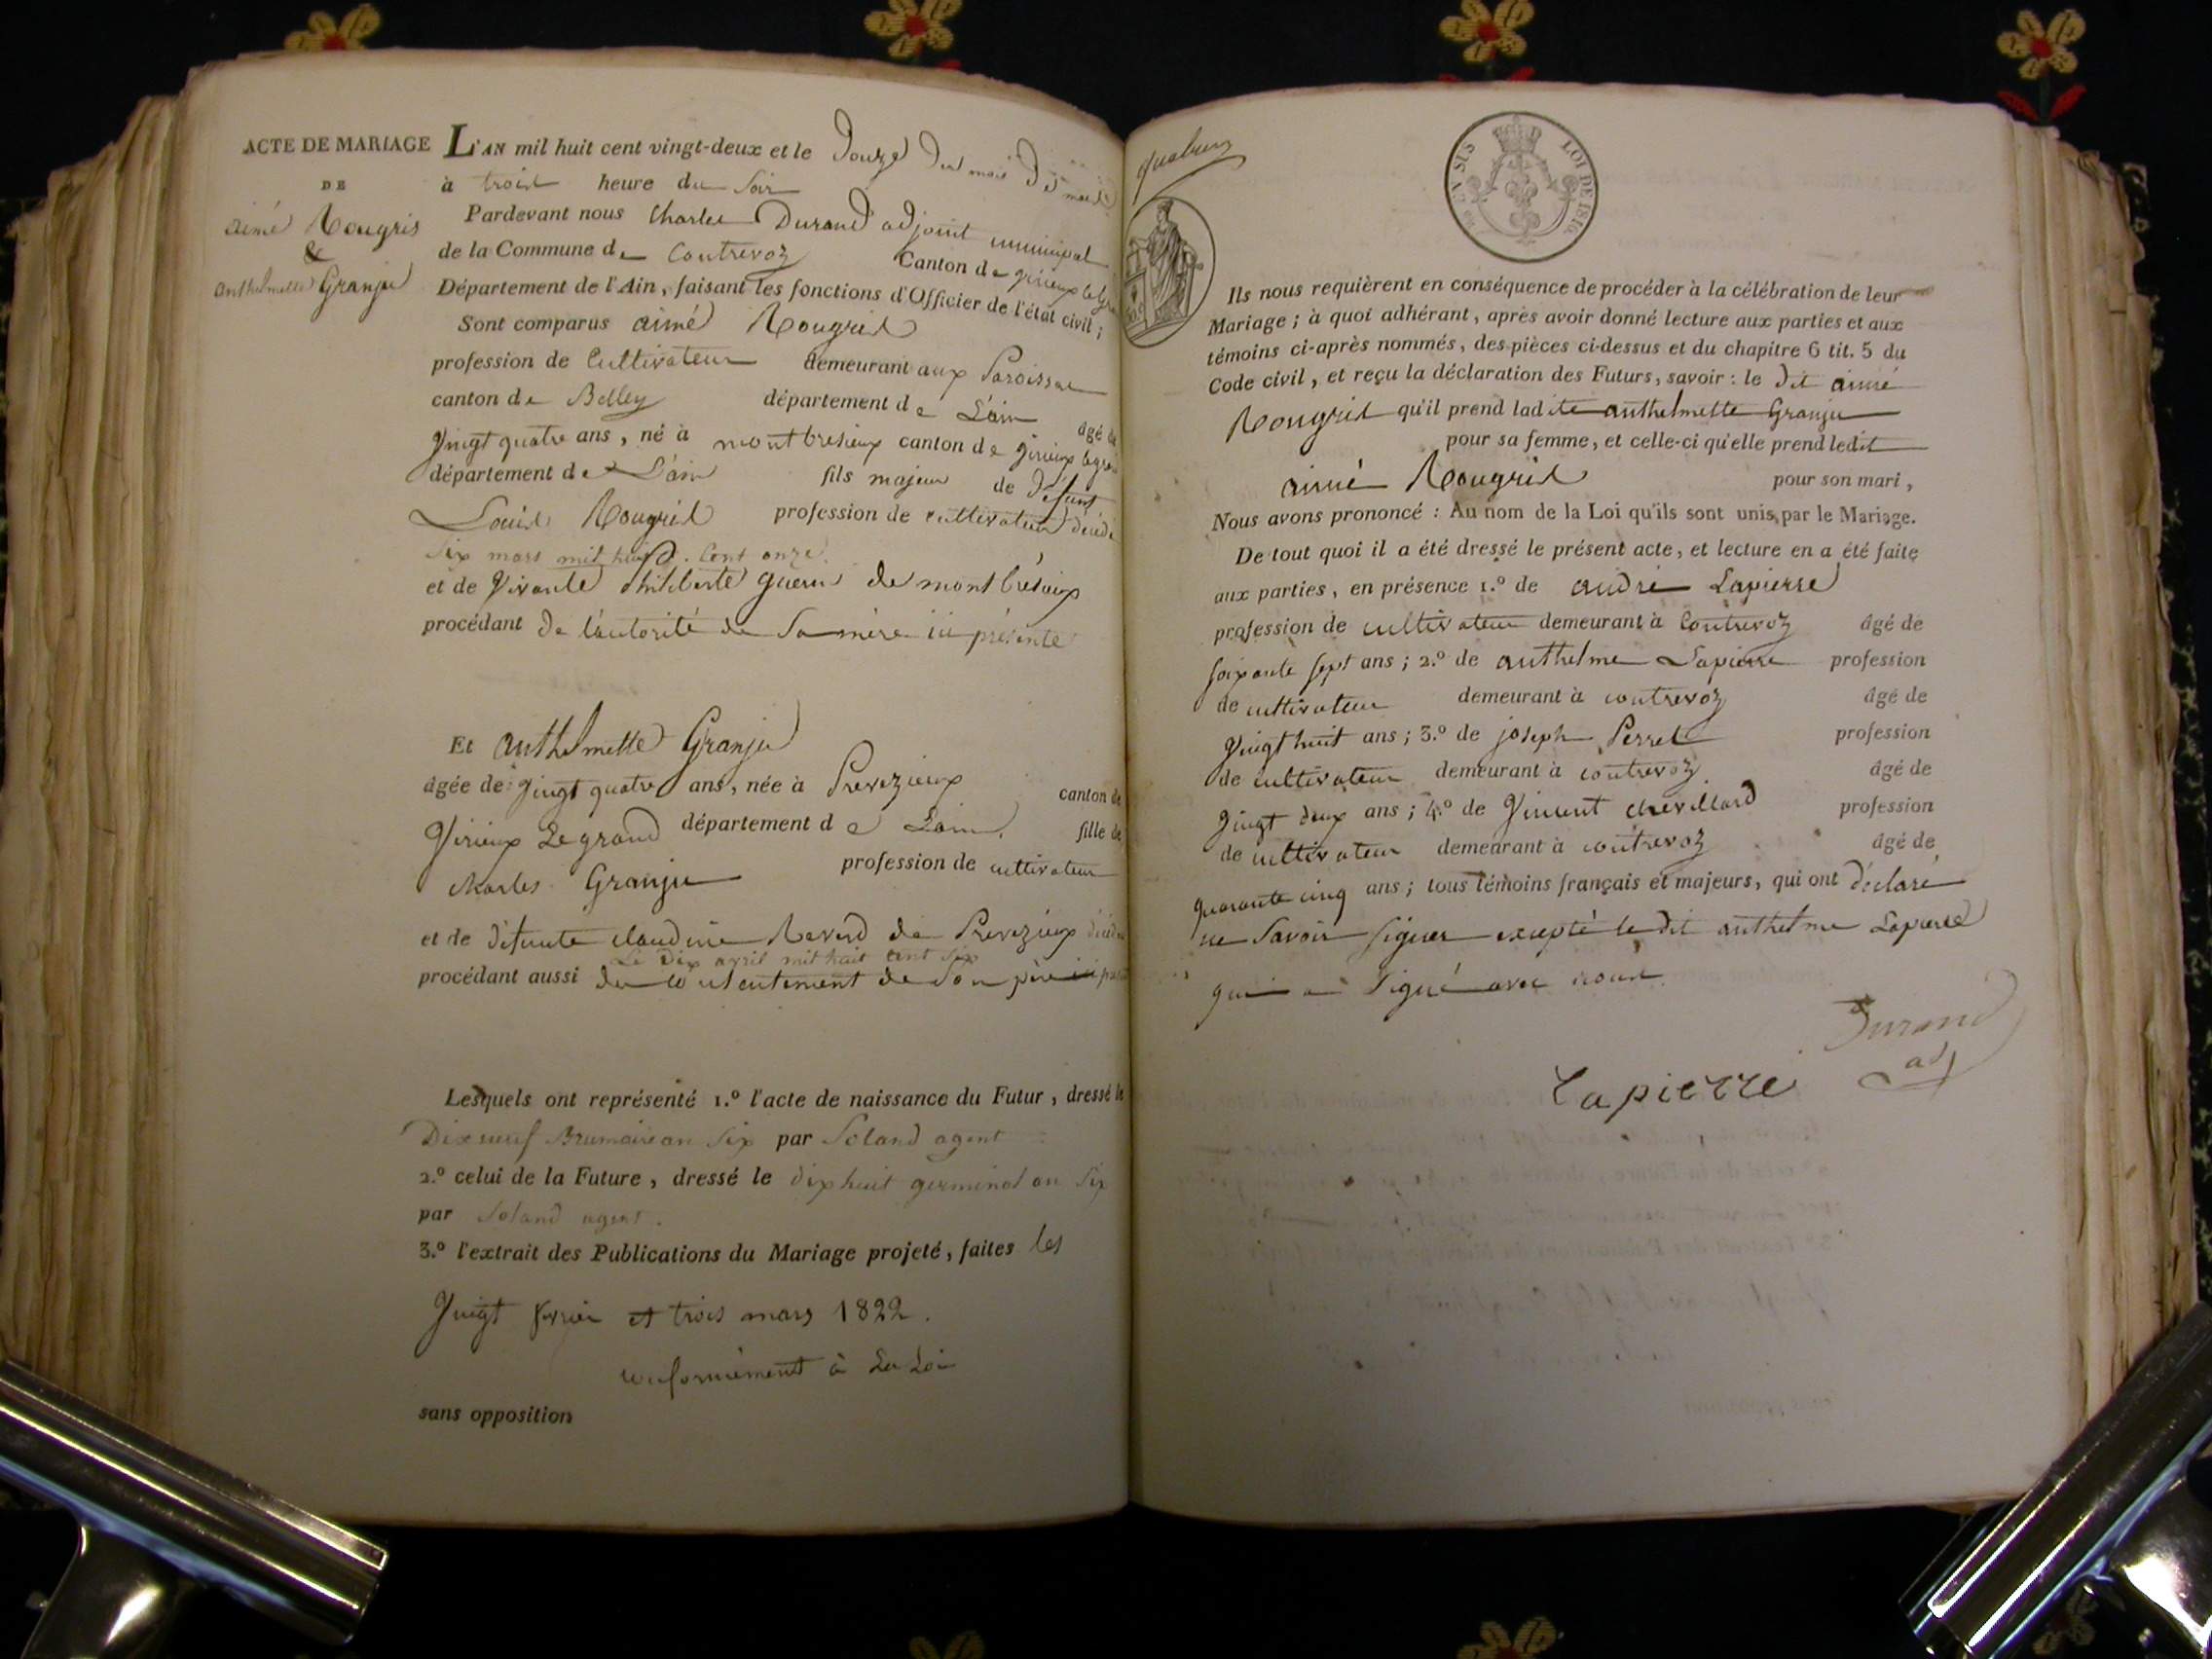 ACTE DE MARIAGE
DE
aimé Rougris
&
anthelmette Granju
L'AN mil huit cent vingt-deux et le Douze du mois De mars
à trois heure du Soir
Pardevant nous Charles Durand adjoint municipal
de la Commune de Contrevoz Canton de Virieux le gr
Département de l'Ain, faisant les fonctions d'Officier de l'état civil;
Sont comparus aimé Rougris
profession de Cultivateur demeurant aux Paroisses
canton de Belley département de L'ain âgé de
Vingt quatre ans, né à montbresieux canton de Virieux le gran
département de L'ain fils majeur de défunt
Louis Rougris profession de cultivateur décédé
Six mars mil huit Cent onze
et de Vivante philiberte guerin de montbrésieux
procédant De l'autorité de Sa mère ici présente
Et anthelmette Granju
âgée de Vingt quatre ans, née à Prevezieux canton de
Virieux Le grand département de Lain fille de
charles Granju profession de cultivateur
et de défunte claudine Revend de Prevezieux décédée
Le Dix avril mil huit cent six
procédant aussi du consentement de Son père ici
Lesquels ont représenté 1.º l'acte de naissance du Futur, dressé le
Dixneuf Brumaire an Six par Soland agent
2.º celui de la Future, dressé le dix huit germinal an Six
par Soland agent.
3.º l'extrait des Publications du Mariage projeté, faites les
Vingt fevrier et trois mars 1822.
conformément à La Loi
sans opposition
LOI DE 1816
Ils nous requièrent en conséquence de procéder à la célébration de leur
Mariage; à quoi adhérant, après avoir donné lecture aux parties et aux
témoins ci-après nommés, des pièces ci-dessus et du chapitre 6 tit. 5 du
Code civil, et reçu la déclaration des Futurs, savoir: le dit aimé
Rougris qu'il prend ladite anthelmette Granju
pour sa femme, et celle-ci qu'elle prend ledit
aimé Rougris pour son mari,
Nous avons prononcé: Au nom de la Loi qu'ils sont unis par le Mariage.
De tout quoi il a été dressé le présent acte, et lecture en a été faite
aux parties, en présence 1.º de andré Lapierre
profession de cultivateur demeurant à Contrevoz âgé de
soixante sept ans; 2.º de anthelme Lapierre profession
de cultivateur demeurant à contrevoz âgé de
Vingt huit ans; 3.º de joseph Perret profession
de cultivateur demeurant à contrevoz âgé de
Vingt deux ans; 4.º de Vincent chevillard profession
de cultivateur demeurant à contrevoz âgé de
quarante cinq ans; tous témoins français et majeurs, qui ont déclaré
ne Savoir signer excepté le dit anthelme Lapierre
qui a signé avec nous
Durand
adj
Lapierre